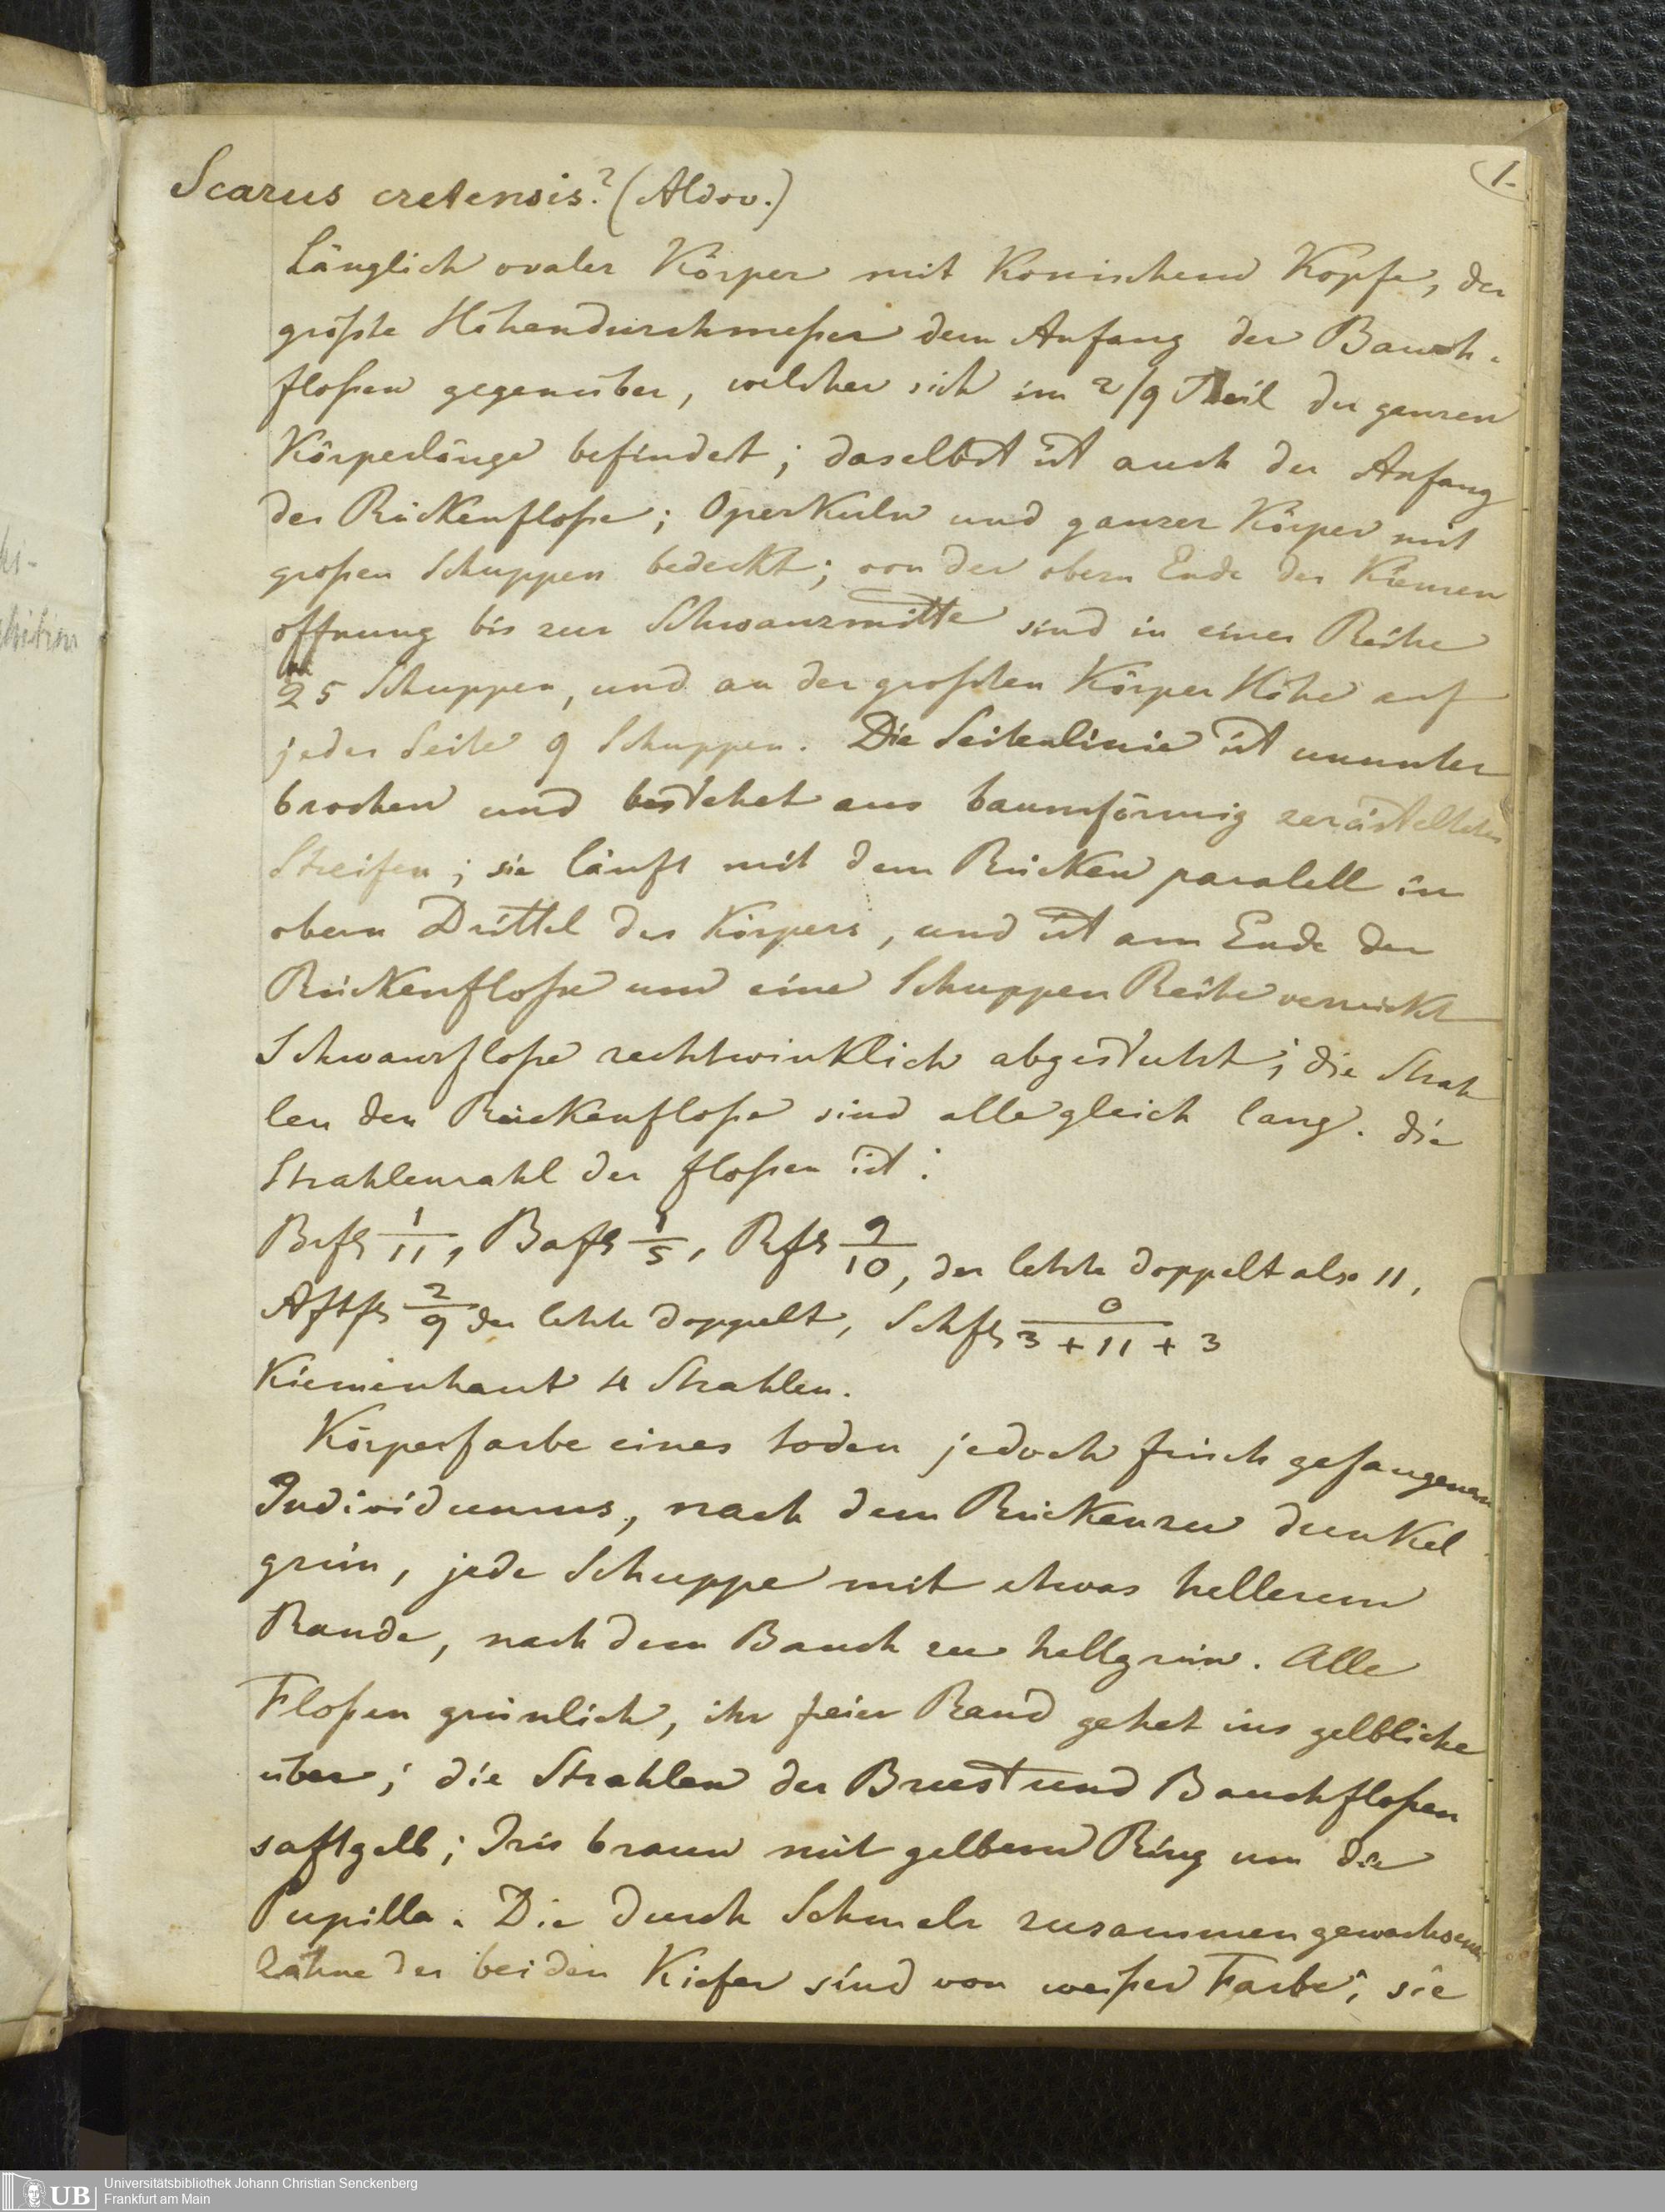 1.
Scarus cretensis? (Aldrov.)
Länglich ovaler Körper mit Konischem Kopfe, der
größte Höhendurchmeßer dem Anfang der Bauch-
floßen gegenüber, welcher sich im 2/9 Theil der ganzen
Körperlänge befindet; daselbst ist auch der Anfang
der Rückenfloße; Operkuln und ganzer Körper mit
großen Schuppen bedeckt; von der obern Ende der Kiemen
öffnung bis zur Schwanzmitte sind in einer Reihe
25 Schuppen, und an der großten Körper Höhe auf
jeder Seite 9 Schuppen. Die Seitenlinie ist ununter
brochen und bestehet aus baumförmig zerästelten
Streifen; sie läuft mit dem Rücken paralell im
obern Drittel des Körpers, und ist am Ende der
Rückenfloße um eine Schuppen Reihe verrückt
Schwanzfloße rechtwinklich abgestutzt; die Strah
len der Rückenfloße sind alle gleich lang. die
Strahlenzahl der floßen ist:
Brfl 1/11, Bafl 1/5, Rfl 9/10, der letzte doppelt also 11,
Aftfl 2/9 der letzte doppelt, Schfl 0/3 + 11 + 3
Kiemenhaut 4 Strahlen.
Körperfarbe eines toden jedoch frisch gefangenen
Individuums, nach dem Rücken zu dunkel
grün, jede Schuppe mit etwas hellerem
Rande, nach dem Bauch zu hellgrün. Alle
Floßen grünlich, ihr freier Rand gehet ins gelbliche
über; die Strahlen der Brust und Bauchfloßen
saftgelb; Iris braun mit gelbem Ring um die
Pupilla. Die durch Schmelz zusammengewachsenen
Zähne der beiden Kiefer sind von weißer Farbe; sie
UB
Universitätsbibliothek Johann Christian Senckenberg
Frankfurt am Main